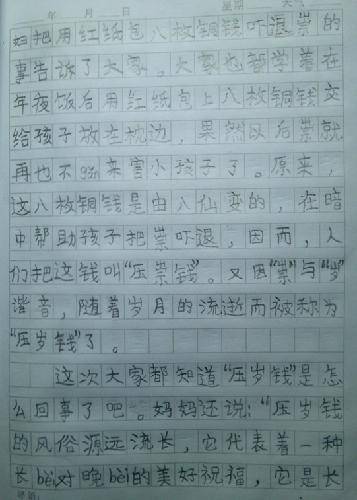 年 月 日 星期 天气
妇把用红纸包八枚铜钱吓退祟的
事告诉了大家。大家也都学着在
年夜饭后用红纸包上八枚铜钱交
给孩子放在枕边，果然以后祟就
再也不gǎn来害小孩子了。原来，
这八枚铜钱是由八仙变的，在暗
中帮助孩子把祟吓退，因而，人
们把这钱叫“压祟钱”。又因“祟”与“岁”
谐音，随着岁月的流逝而被称为
“压岁钱”了。
这次大家都知道“压岁钱”是怎
么回事了吧。妈妈还说：“压岁钱
的风俗源远流长，它代表着一种
长bèi对晚bèi的美好祝福，它是长